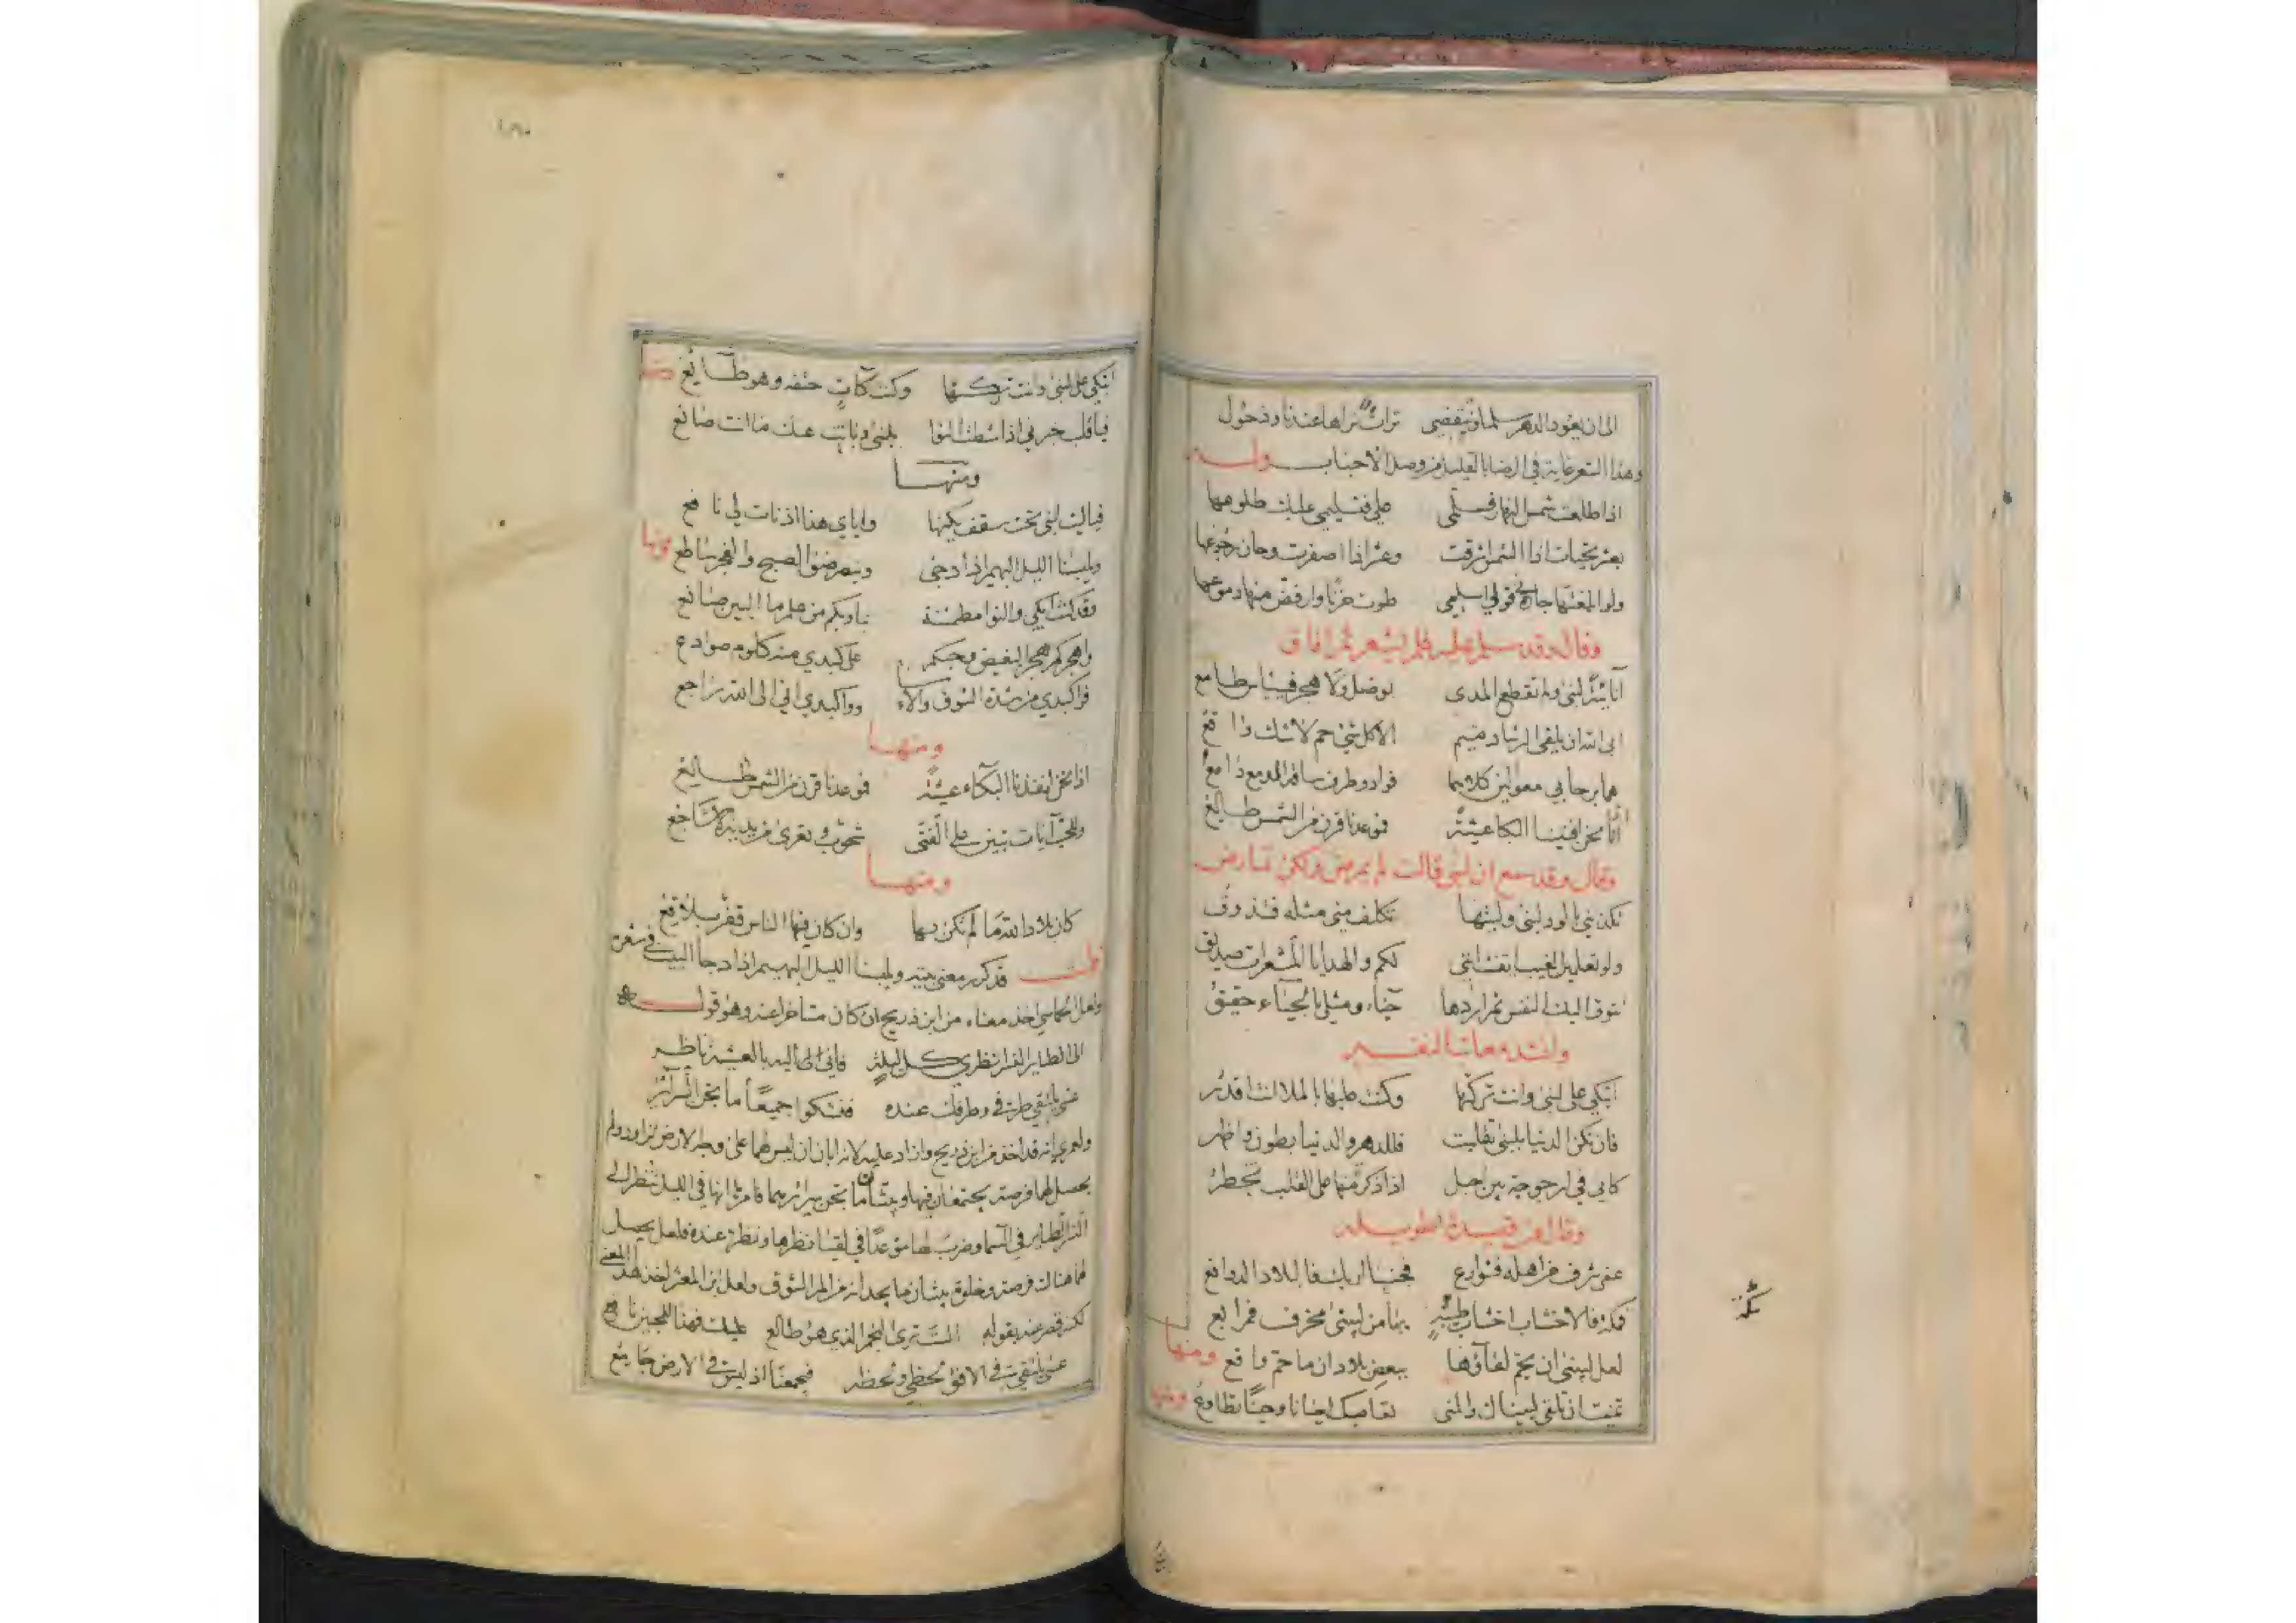 الى ان يعود الدهر سلما وينقضى تراث نراها عندنا وذحول
وهذا الشعر غاية في الرضا بالقليل من وصل الاحباب وله
اذا طلعت شمس النهار فسلمى على فتسليمى عليك طلوعها
بعشر تحيات اذا الشمس اشرقت وعشر اذا اصفرت وحان رجوعها
ولو ابلغتها جارة قولي اسلمى طوت حزنا وارفض منها دموعها
وقال وقد سلم عليه فلم يشعر ثم افاق
بوصل ولا هجر فييأس طامع
ابى الله ان يلقى الرشاد متيم الا كل شئ حم لا شك واقع
هما برحا بي معولين كلاهما فواد وطرف ساقه المدمع دامع
اذا نحن افنينا البكا عشية فموعدنا قرن من الشمس طالع
وقال وقد سمع ان لبنى قالت لم يمرض ولكن تمارض
تكذبني بالود لبنى وليتها تكلف مني مثله فتذوق
ولو تعلمين الغيب ايقنت انني لكم والهدايا المشعرات صديق
تتوق اليك النفس ثم اردها حياء ومثلي بالحياء حقيق
اتبكي على لبنى وانت تركتها وكنت عليها بالملا انت اقدر
فان تكن الدنيا بلبنى تقلبت فللدهر والدنيا بطون واظهر
كاني في ارجوحة بين احبل اذا ذكرة منها على القلب تخطر
وقال من قصيدة طويلة
عفى سرف من اهله فسوارع فجنبا اريك فالبلاد الدوافع
فمكة فالاخشاب اخشاب ظبية بها من لبينى مخرف فمرابع
لعل لبينى ان يحم لقاؤها ببعض بلاد ان ما حم واقع ومنها
تمنيت ان تلقى لبيناك والمنى تعاصيك احيانا وحينا تطاوع ومنها
مكة
١٨٠
اتبكي على لبنى وانت تركتها وكنت كآت حتفه وهو طائع
فيا قلب خبرني اذا شطت النوا بلبنى وبانت عنك ما انت صانع
ومنها
فياليت لبنى تحت سقف يكنها واياي هذا اذ نات لي نافع
ويلبسنا الليل البهيم اذا دجى ونبصر ضوء الصبح والفجر ساطع ومنها
وقد كنت ابكي والنوا مطمئنة بنا وبكم من علم ما البين صانع
واهجركم هجر البغيض وحبكم على كبدي منه كلوم صوادع
فوا كبدي من شدة الشوق والاسا ووا كبدي اني الى الله راجع
ومنها
اذا نحن انفدنا البكاء عشية فموعدنا قرن من الشمس طالع
وللحب آيات تبين على الفتى شحوب وتعرى من يديه الاشاجع
ومنها
كان بلاد الله ما لم تكن بها وان كان فيها الناس قفر بلاقع
قلت قد كرر معنى بيته ويلبسنا الليل البهيم اذا دجا البيت في شعره
ولعل الحماسي اخذ معناه من ابن ذريح ان كان متاخرا عنه وهو قوله
الى الطاير النسر انظري كل ليلة فاني اليه بالعشية ناظر
عسى يلتقي طرفي وطرفك عنده فنشكوا جميعا ما تجن السرائر
ولعمري انه قد اخذ من ابن ذريح وزاد عليه لانه ابان ان ليس لهما على وجه الارض تزاور ولم
يحصل لهما فرصة يجتمعان فيها ويبثان ما تجن سرائرهما فامرها انها في الليل تنظر الى
النسر الطاير في السما وضرب لها موعدا في لقيا نظرها ونظره عنده فلعل يحصل
لهما هنالك فرصة وخلوة يبثان ما يجدانه من الم الشوق ولعل ابن المعتز اخذ هذا المعنى
لكنه قصر عنه بقوله الست ترى النجم الذي هو طالع عليك فهذا للمحبين نافع
عسى يلتقي في الافق لحظي ولحظه فيجمعنا اذ ليس في الارض جامع